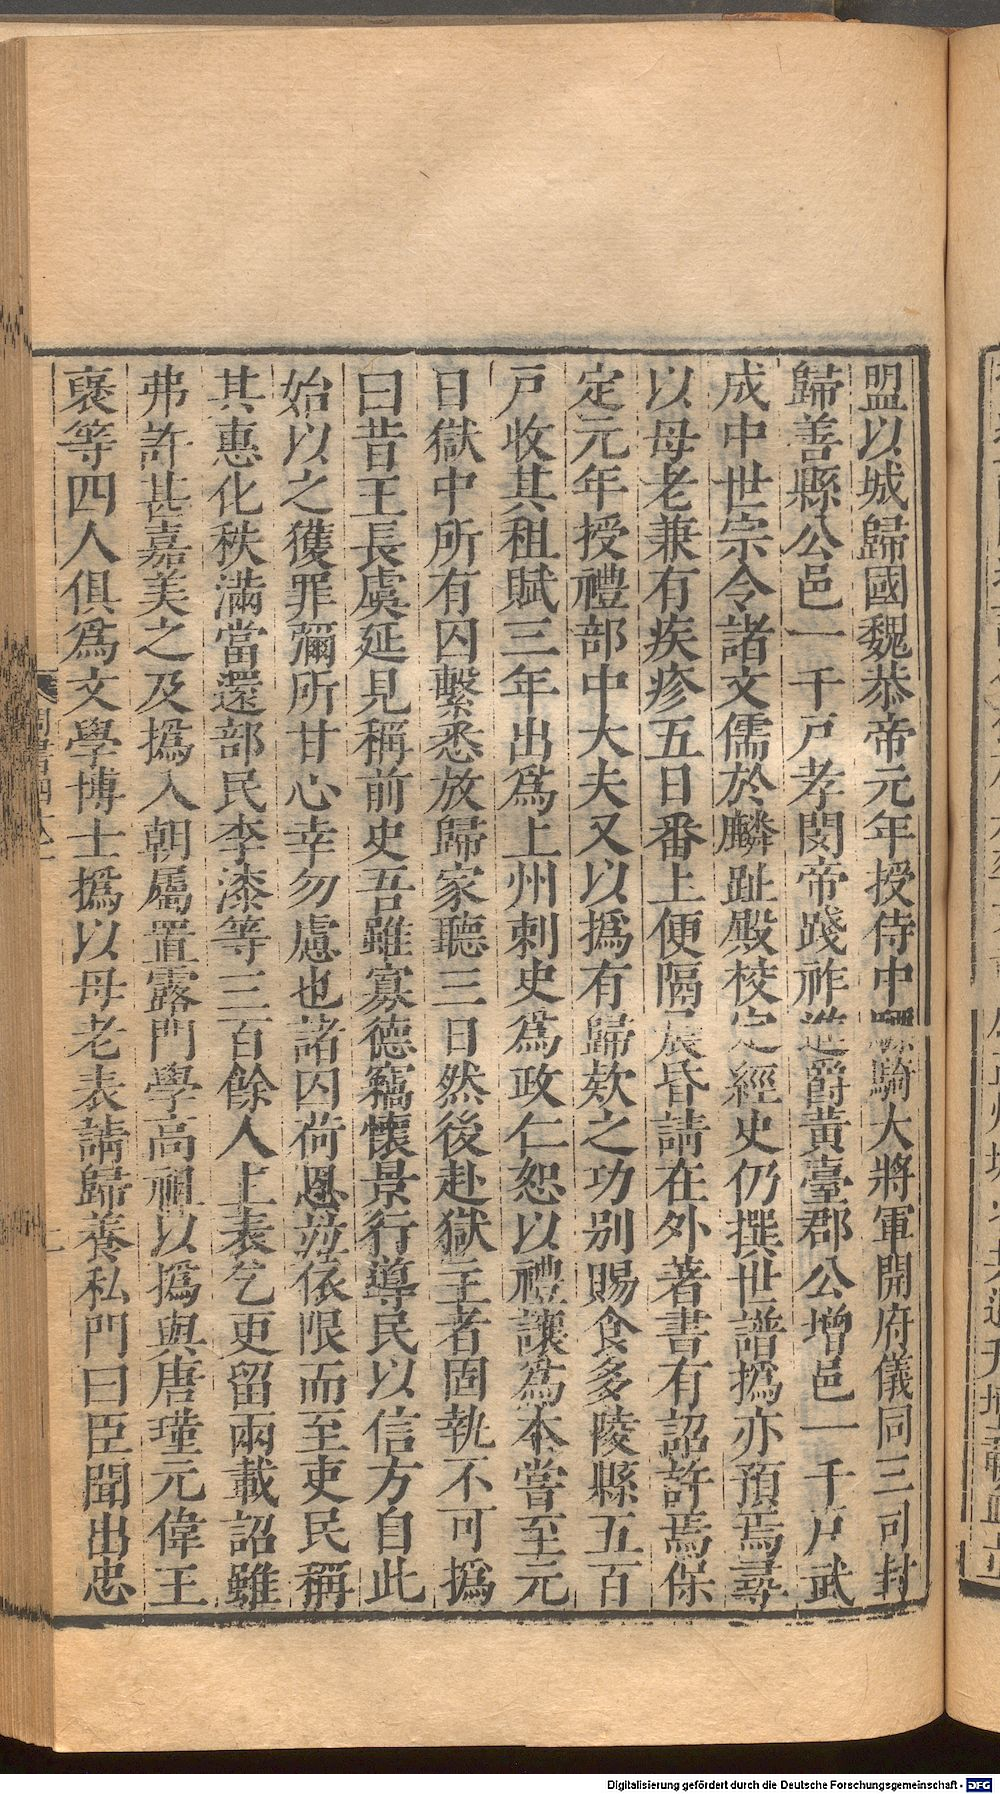 盟以城歸國魏恭帝元年授侍中驃騎大將軍開府儀同三司封
歸善縣公邑一千戸孝閔帝踐祚進爵黃臺郡公增邑一千戸武
成中世宗令諸文儒於麟趾殿校定經史仍撰世譜撝亦預焉尋
以母老兼有疾疹五日番上便隔晨昏請在外著書有詔許焉保
定元年授禮部中大夫又以撝有歸欵之功別賜食多陵縣五百
戸收其租賦三年出爲上州刺史爲政仁恕以禮讓爲本嘗至元
日獄中所有囚繫悉放歸家聽三日然後赴獄主者固執不可撝
曰昔王長虞延見稱前史吾雖寡德竊懷景行導民以信方自此
始以之獲罪彌所甘心幸勿慮也諸囚荷恩竝依限而至吏民稱
其惠化秩滿當還部民李漆等三百餘人上表乞更留兩載詔雖
弗許甚嘉美之及撝入朝屬置露門學高祖以撝與唐瑾元偉王
褒等四人俱爲文學博士撝以母老表請歸養私門曰臣聞出忠
Digitalisierung gefördert durch die Deutsche Forschungsgemeinschaft - DFG